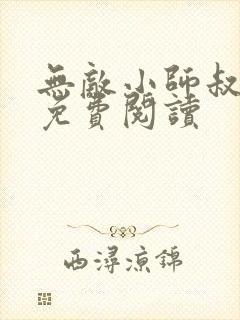 無敵小師叔
免費閱讀
西潯涼錦